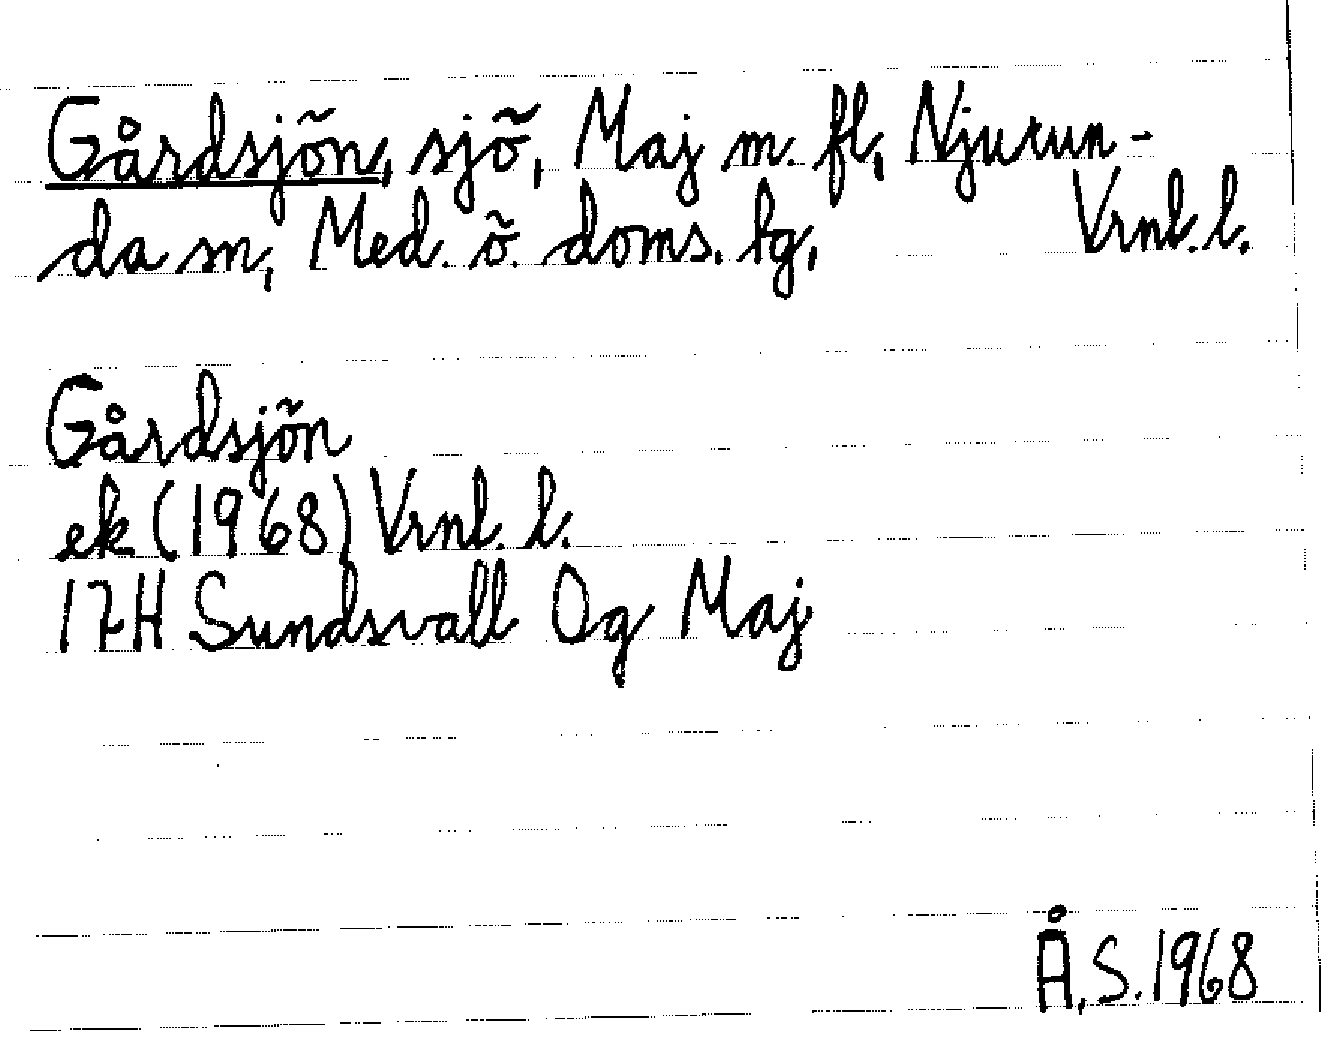 Gårdsjön, sjö, Maj m. fl, Njurun-
da sn, Med. ö. doms. lg, Vrnl. l.
Gårdsjön
ek (1968) Vrnl. l.
17H Sundsvall Og Maj
Å. S. 1968